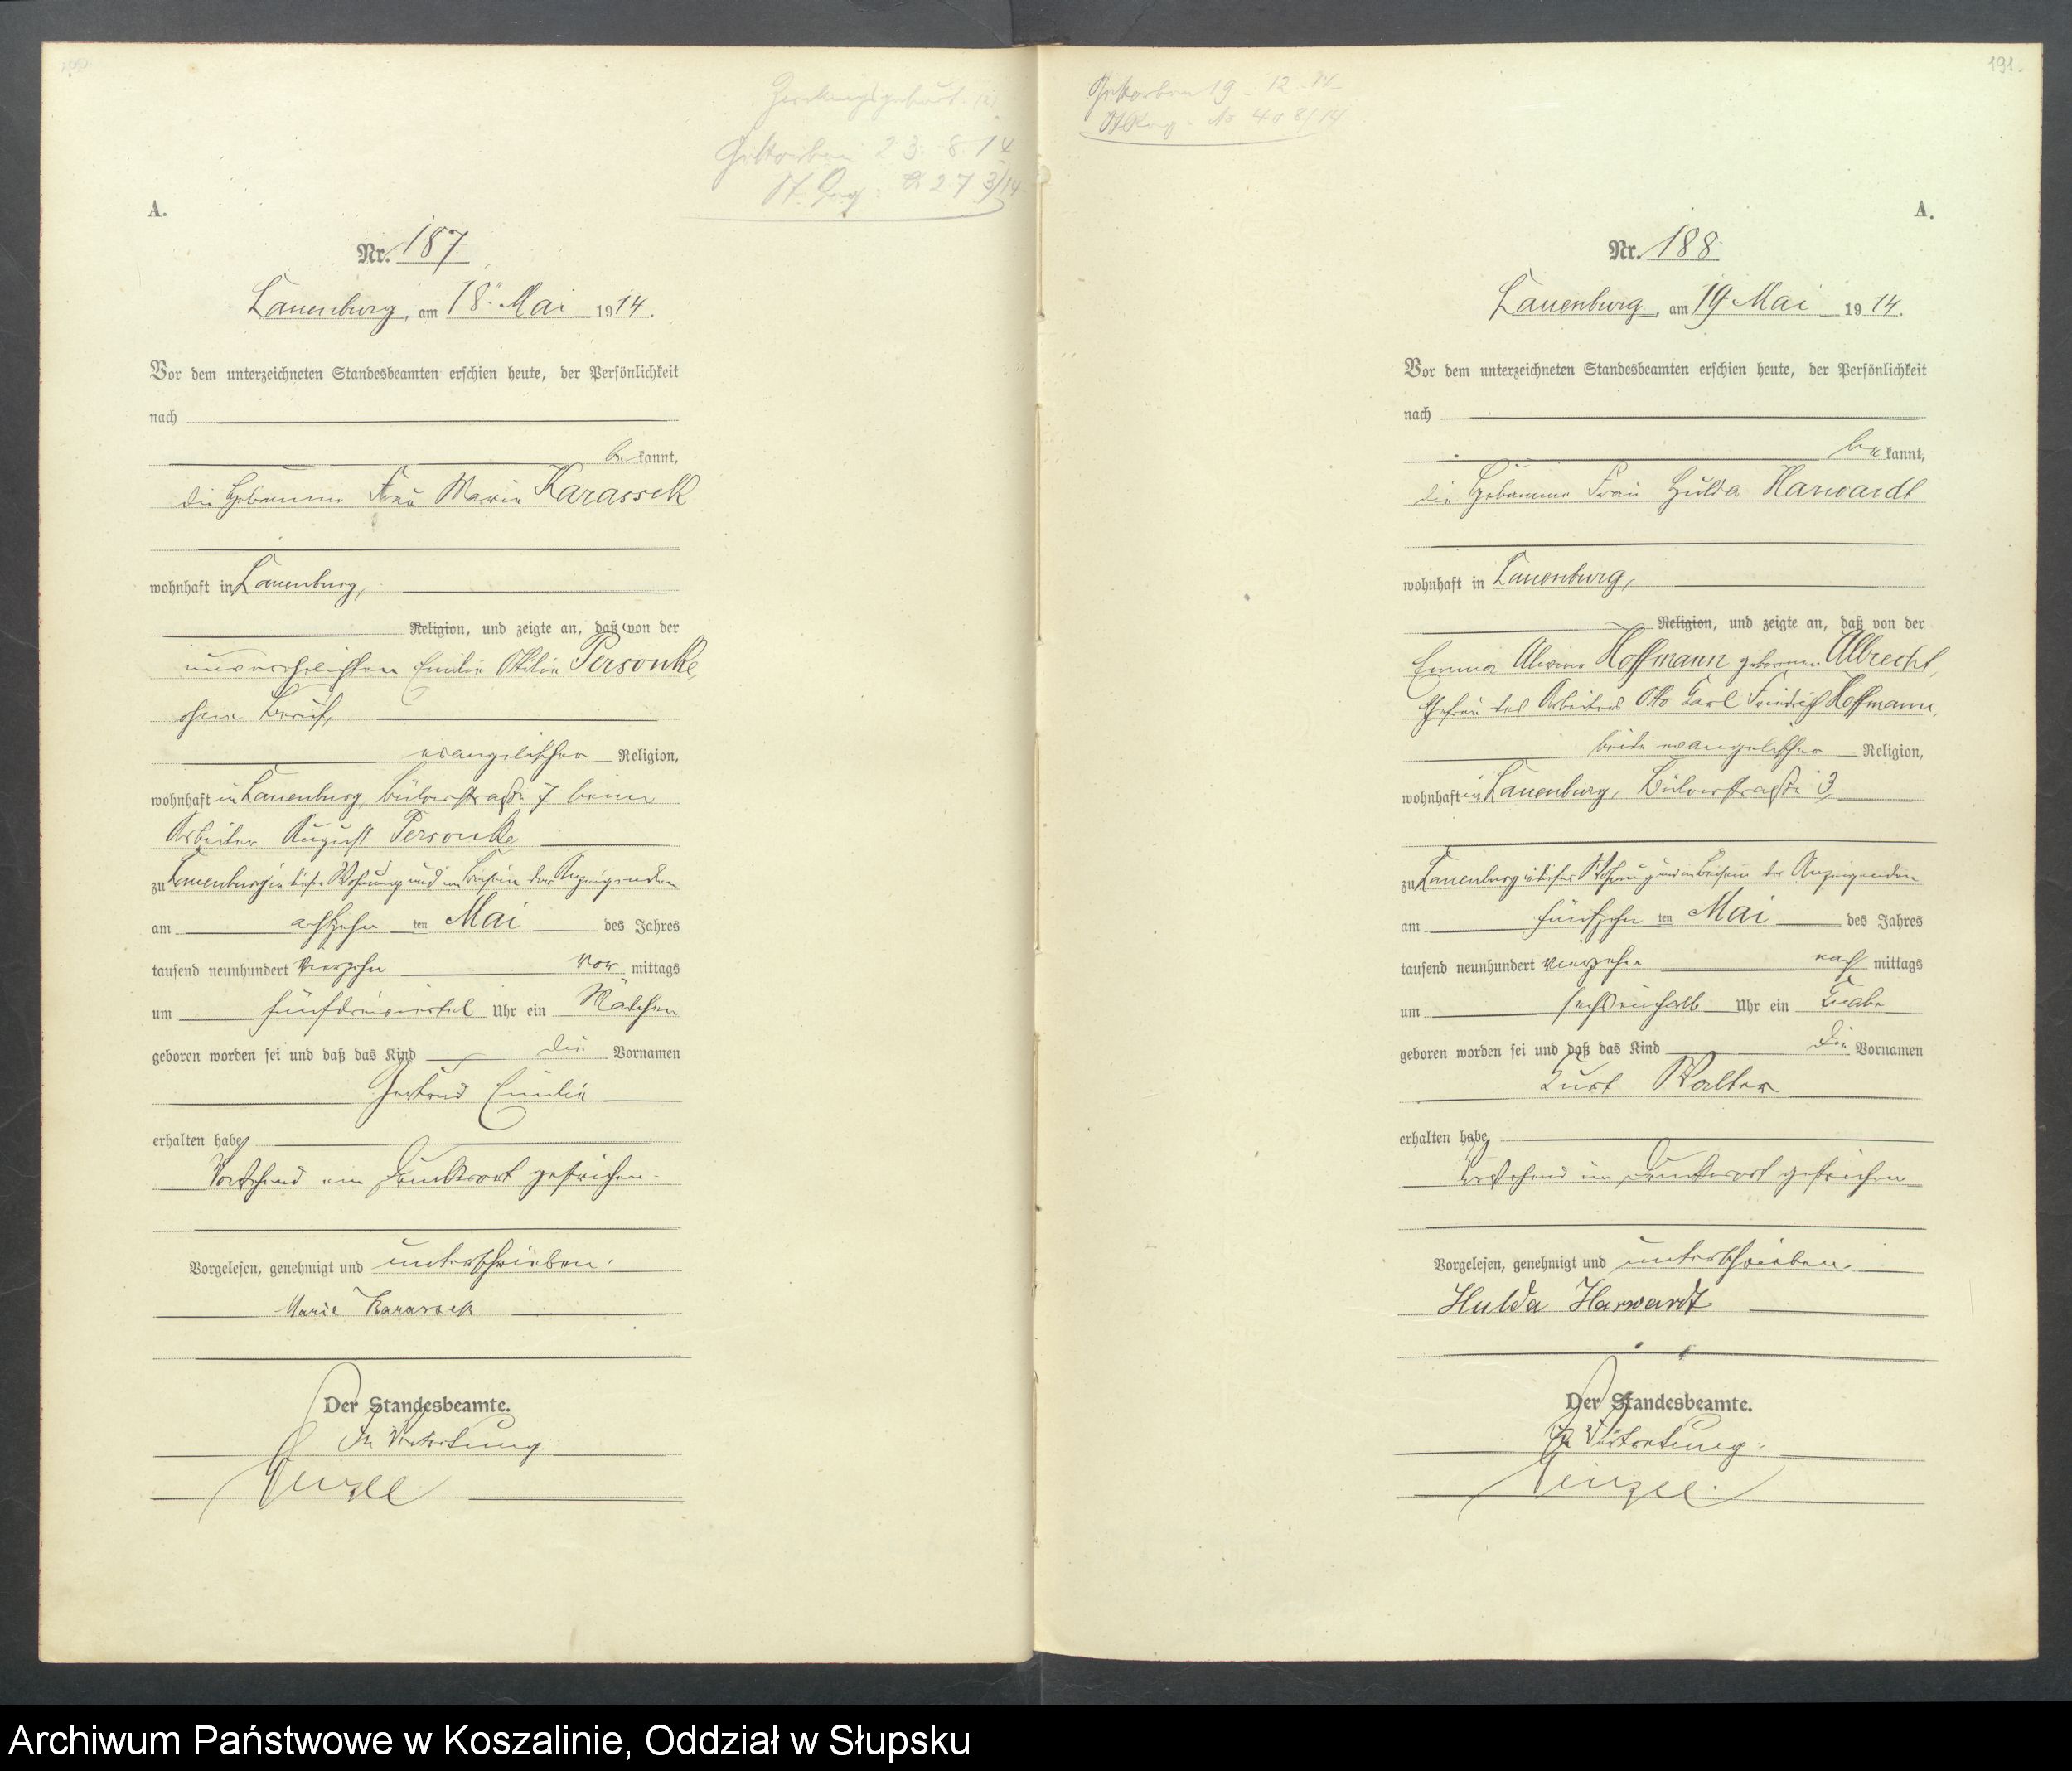 Gestorben 23. 8. 14
A.
Nr. 187
Lauenburg, am 18. Mai 1914.
Vor dem unterzeichneten Standesbeamten erschien heute, der Persönlichkeit
nach
be kannt,
die Hebamme Frau Marie Karassek
wohnhaft in Lauenburg,
Religion, und zeigte an, daß von der
unverehelichten Emilie Ottilie Personke,
ohne Beruf,
evangelischer Religion,
wohnhaft in Lauenburg Bülowstraße 7 beim
Arbeiter August Personke
zu Lauenburg in dieser Wohnung und im Beisein der Anzeigenden
am achtzehn ten Mai des Jahres
tausend neunhundert vierzehn vor mittags
um fünfdreiviertel Uhr ein Mädchen
geboren worden sei und daß das Kind die Vornamen
Gertrud Emilie
erhalten habe
Vorstehend ein Druckwort gestrichen.
Vorgelesen, genehmigt und unterschrieben.
Marie Karassek
Der Standesbeamte.
In Vertretung
191.
Gestorben 19. 12. 14
No 408/14
A.
Nr. 188
Lauenburg, am 19 Mai 1914.
Vor dem unterzeichneten Standesbeamten erschien heute, der Persönlichkeit
nach
be kannt,
die Hebamme Frau Hulda Harwardt
wohnhaft in Lauenburg,
Religion, und zeigte an, daß von der
Emma Alwine Hoffmann geborenen Albrecht,
Ehefrau des Arbeiters Otto Carl Friedrich Hoffmann,
beide evangelischer Religion,
wohnhaft in Lauenburg, Bülowstraße 3,
zu Lauenburg in dieser Wohnung und im Beisein der Anzeigenden
am fünfzehn ten Mai des Jahres
tausend neunhundert vierzehn nach mittags
um sechseinhalb Uhr ein Knabe
geboren worden sei und daß das Kind die Vornamen
Kurt Walter
erhalten habe
Vorstehend ein Druckwort gestrichen
Vorgelesen, genehmigt und unterschrieben.
Hulda Harwardt
Der Standesbeamte.
In Vertretung.
Archiwum Państwowe w Koszalinie, Oddział w Słupsku